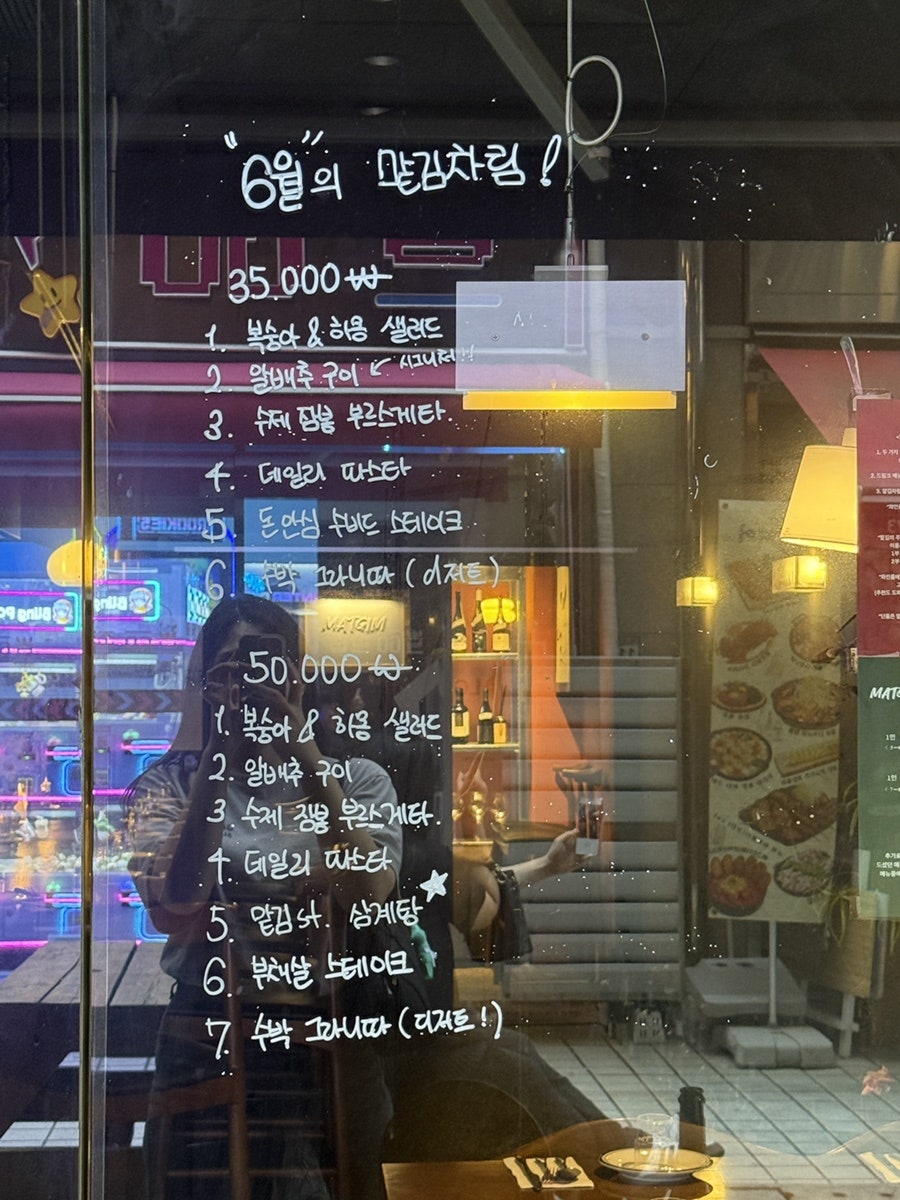 "6월"의 맡김차림!
35.000₩
1. 복숭아 & 하몽 샐러드
2. 알배추 구이 ↙ 시그니처!!
3. 수제 잠봉 부르스케타.
4. 데일리 파스타
5 돈안심 수비드 스테이크
6 수박 그라니따 (디저트)
MATGIM
50.000₩
1. 복숭아 & 하몽 샐러드
2. 알배추 구이
3 수제 잠봉 부르스게타.
4 데일리 파스타
5. 맡김st. 삼계탕
6. 부채살 스테이크
7. 수박 그라니따 (디저트!)